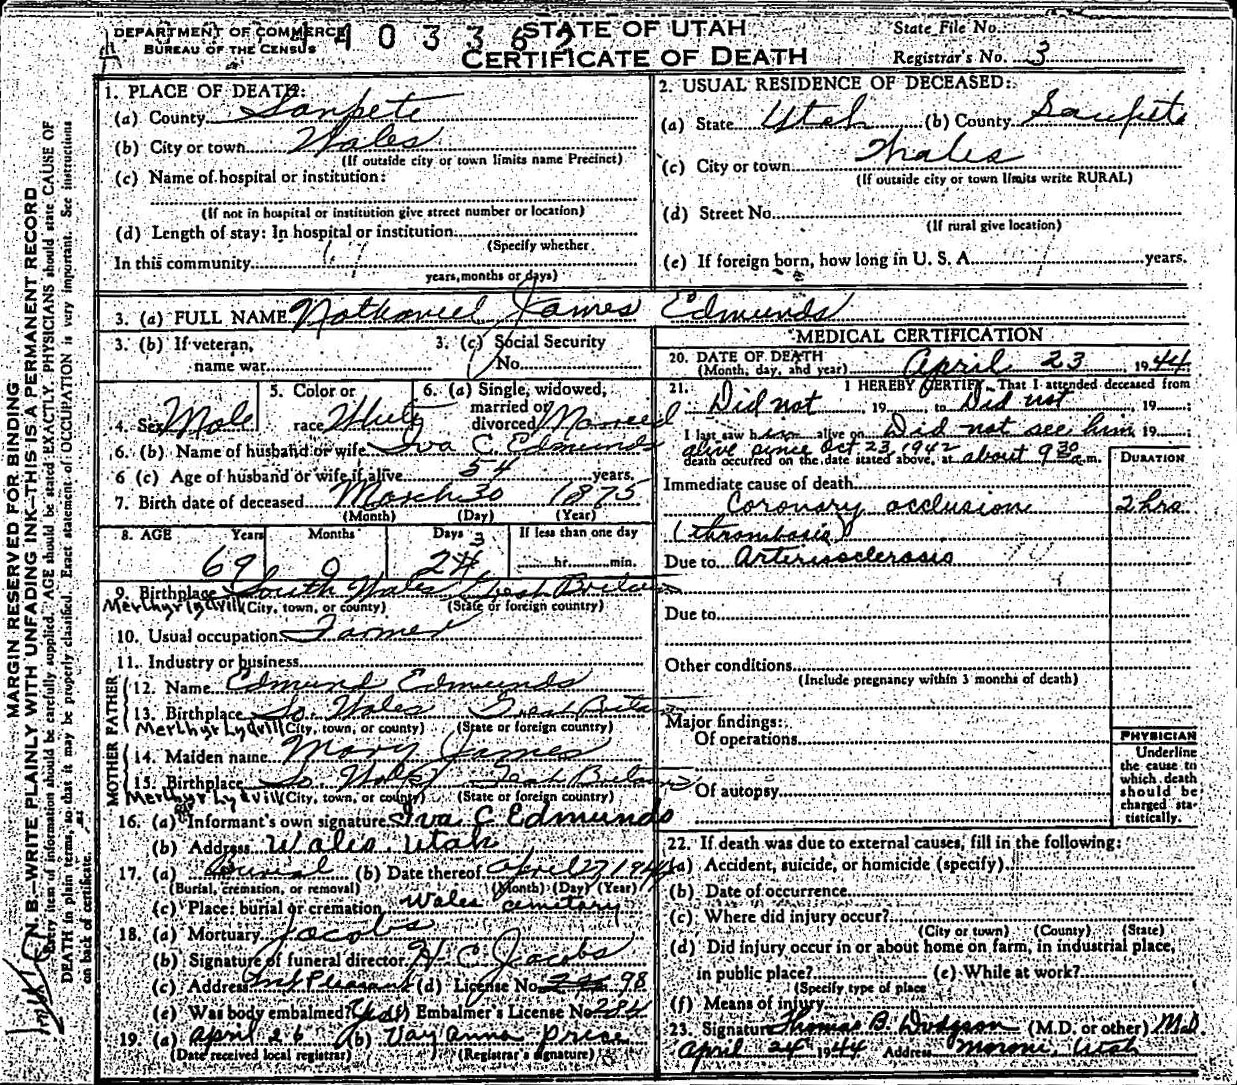 DEPARTMENT OF COMMERCE
BUREAU OF THE CENSUS
STATE OF UTAH
CERTIFICATE OF DEATH
State File No.
Registrar's No. 3
MARGIN RESERVED FOR BINDING
N. B.—WRITE PLAINLY WITH UNFADING INK—THIS IS A PERMANENT RECORD
Every item of information should be carefully supplied. AGE should be stated EXACTLY. PHYSICIANS should state CAUSE OF
DEATH in plain terms, so that it may be properly classified. Exact statement of OCCUPATION is very important. See instructions
on back of certificate.
1. PLACE OF DEATH:
(a) County Sanpete
(b) City or town Wales
(If outside city or town limits name Precinct)
(c) Name of hospital or institution:
(If not in hospital or institution give street number or location)
(d) Length of stay: In hospital or institution
(Specify whether
In this community
years, months or days)
2. USUAL RESIDENCE OF DECEASED:
(a) State Utah (b) County Sanpete
(c) City or town Wales
(If outside city or town limits write RURAL)
(d) Street No.
(If rural give location)
(e) If foreign born, how long in U. S. A. years.
3. (a) FULL NAME Nathaniel James Edmunds
3. (b) If veteran,
name war
3. (c) Social Security
No.
4. Sex Male
5. Color or
race White
6. (a) Single, widowed,
married or
divorced Married
6. (b) Name of husband or wife Iva C. Edmunds
6 (c) Age of husband or wife if alive 54 years.
7. Birth date of deceased March 30 1875
(Month) (Day) (Year)
8. AGE Years Months Days If less than one day
69 0 hr. min.
9. Birthplace South Wales Great Britain
(City, town, or county) (State or foreign country)
10. Usual occupation Farmer
11. Industry or business
FATHER
12. Name Edmund Edmunds
13. Birthplace So. Wales Great Britain
(City, town, or county) (State or foreign country)
MOTHER
14. Maiden name Mary James
15. Birthplace So. Wales Great Britain
(City, town, or county) (State or foreign country)
16. (a) Informant's own signature Iva C. Edmunds
(b) Address Wales, Utah
17. (a) Burial (b) Date thereof April 27 1944
(Burial, cremation, or removal) (Month) (Day) (Year)
(c) Place: burial or cremation Wales cemetery
18. (a) Mortuary Jacobs
(b) Signature of funeral director H. C. Jacobs
(c) Address Mt Pleasant (d) License No. 98
(e) Was body embalmed? (yes) Embalmer's License No. 284
19. (a) April 26 (b) Vay anna Price
(Date received local registrar) (Registrar's signature)
MEDICAL CERTIFICATION
20. DATE OF DEATH
(Month, day, and year) April 23, 1944
21. I HEREBY CERTIFY, That I attended deceased from
Did not, 19 to Did not, 19
I last saw him alive on Did not see him, 19
alive since Oct 23, 1942
death occurred on the date stated above, at about 9 30 a.m.
DURATION
Immediate cause of death
Coronary occlusion 2 hrs.
(thrombosis)
Due to Arteriosclerosis
Due to
Other conditions
(Include pregnancy within 3 months of death)
Major findings:
Of operations
Of autopsy
PHYSICIAN
Underline
the cause to
which death
should be
charged sta-
tistically.
22. If death was due to external causes, fill in the following:
(a) Accident, suicide, or homicide (specify)
(b) Date of occurrence
(c) Where did injury occur?
(City or town) (County) (State)
(d) Did injury occur in or about home on farm, in industrial place,
in public place? (e) While at work?
(Specify type of place
(f) Means of injury
23. Signature Thomas B. Dodgson (M.D. or other) M.D.
April 24 1944 Address Moroni, Utah